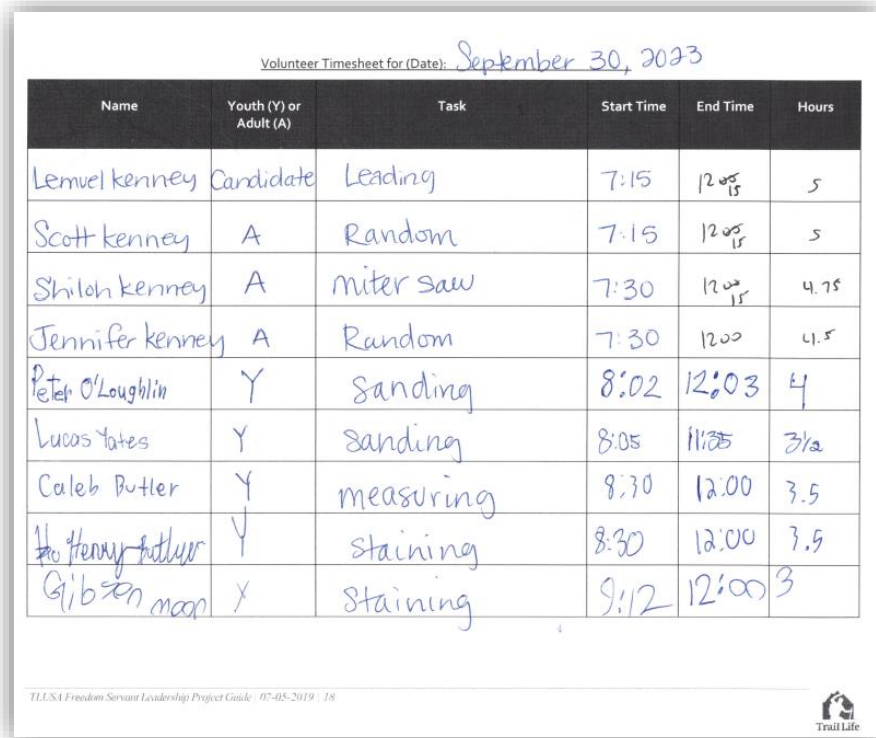 Volunteer Timesheet for (Date): September 30, 2023
Name Youth (Y) or Adult (A) Task Start Time End Time Hours
Lemuel Kenney Candidate Leading 7:15 12:15 5
Scott Kenney A Random 7:15 12:15 5
Shiloh Kenney A miter saw 7:30 12:15 4.75
Jennifer Kenney A Random 7:30 1200 4.5
Peter O'Loughlin Y Sanding 8:02 12:03 4
Lucas Yates Y Sanding 8:05 11:35 3 1/2
Caleb Butler Y measuring 8:30 12:00 3.5
Henry Y Staining 8:30 12:00 3.5
Gibson moon Y Staining 9:12 12:00 3
TLUSA Freedom Servant Leadership Project Guide | 07-05-2019 | 18
Trail Life